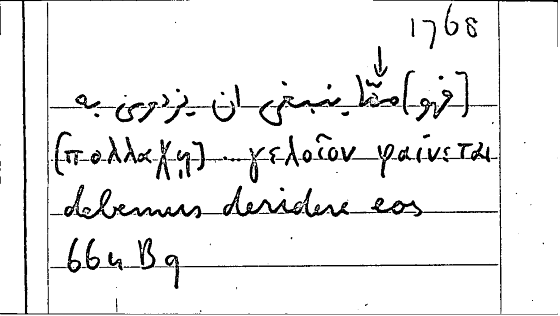 1768
[فهو] ممّا ينبغى ان يزدرى به
[πολλαχῃ] .. γελοῖον φαίνεται
debemus deridere eos
66u B 9